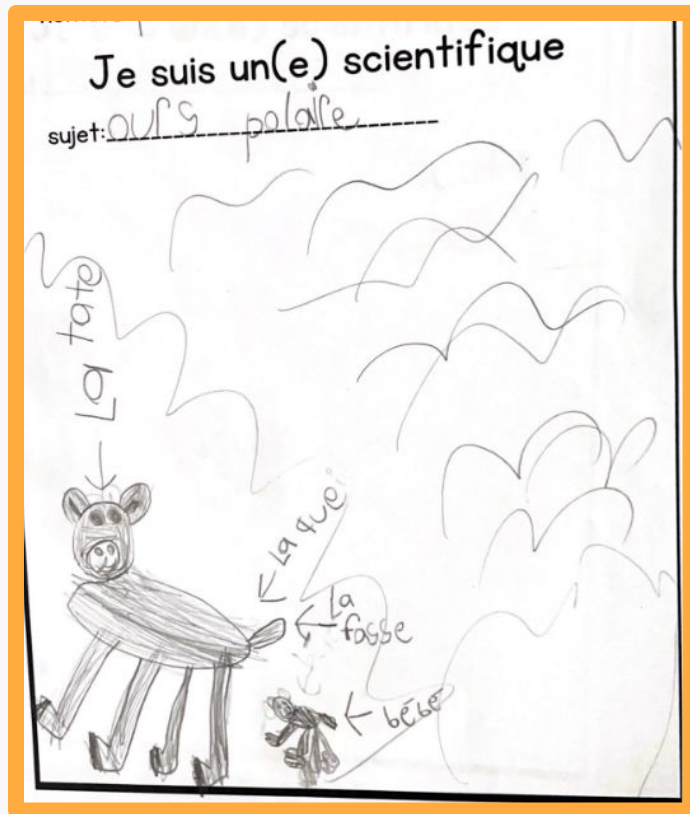 Je suis un(e) scientifique
sujet: ours polaire
La tate
La que
La
fasse
bébé